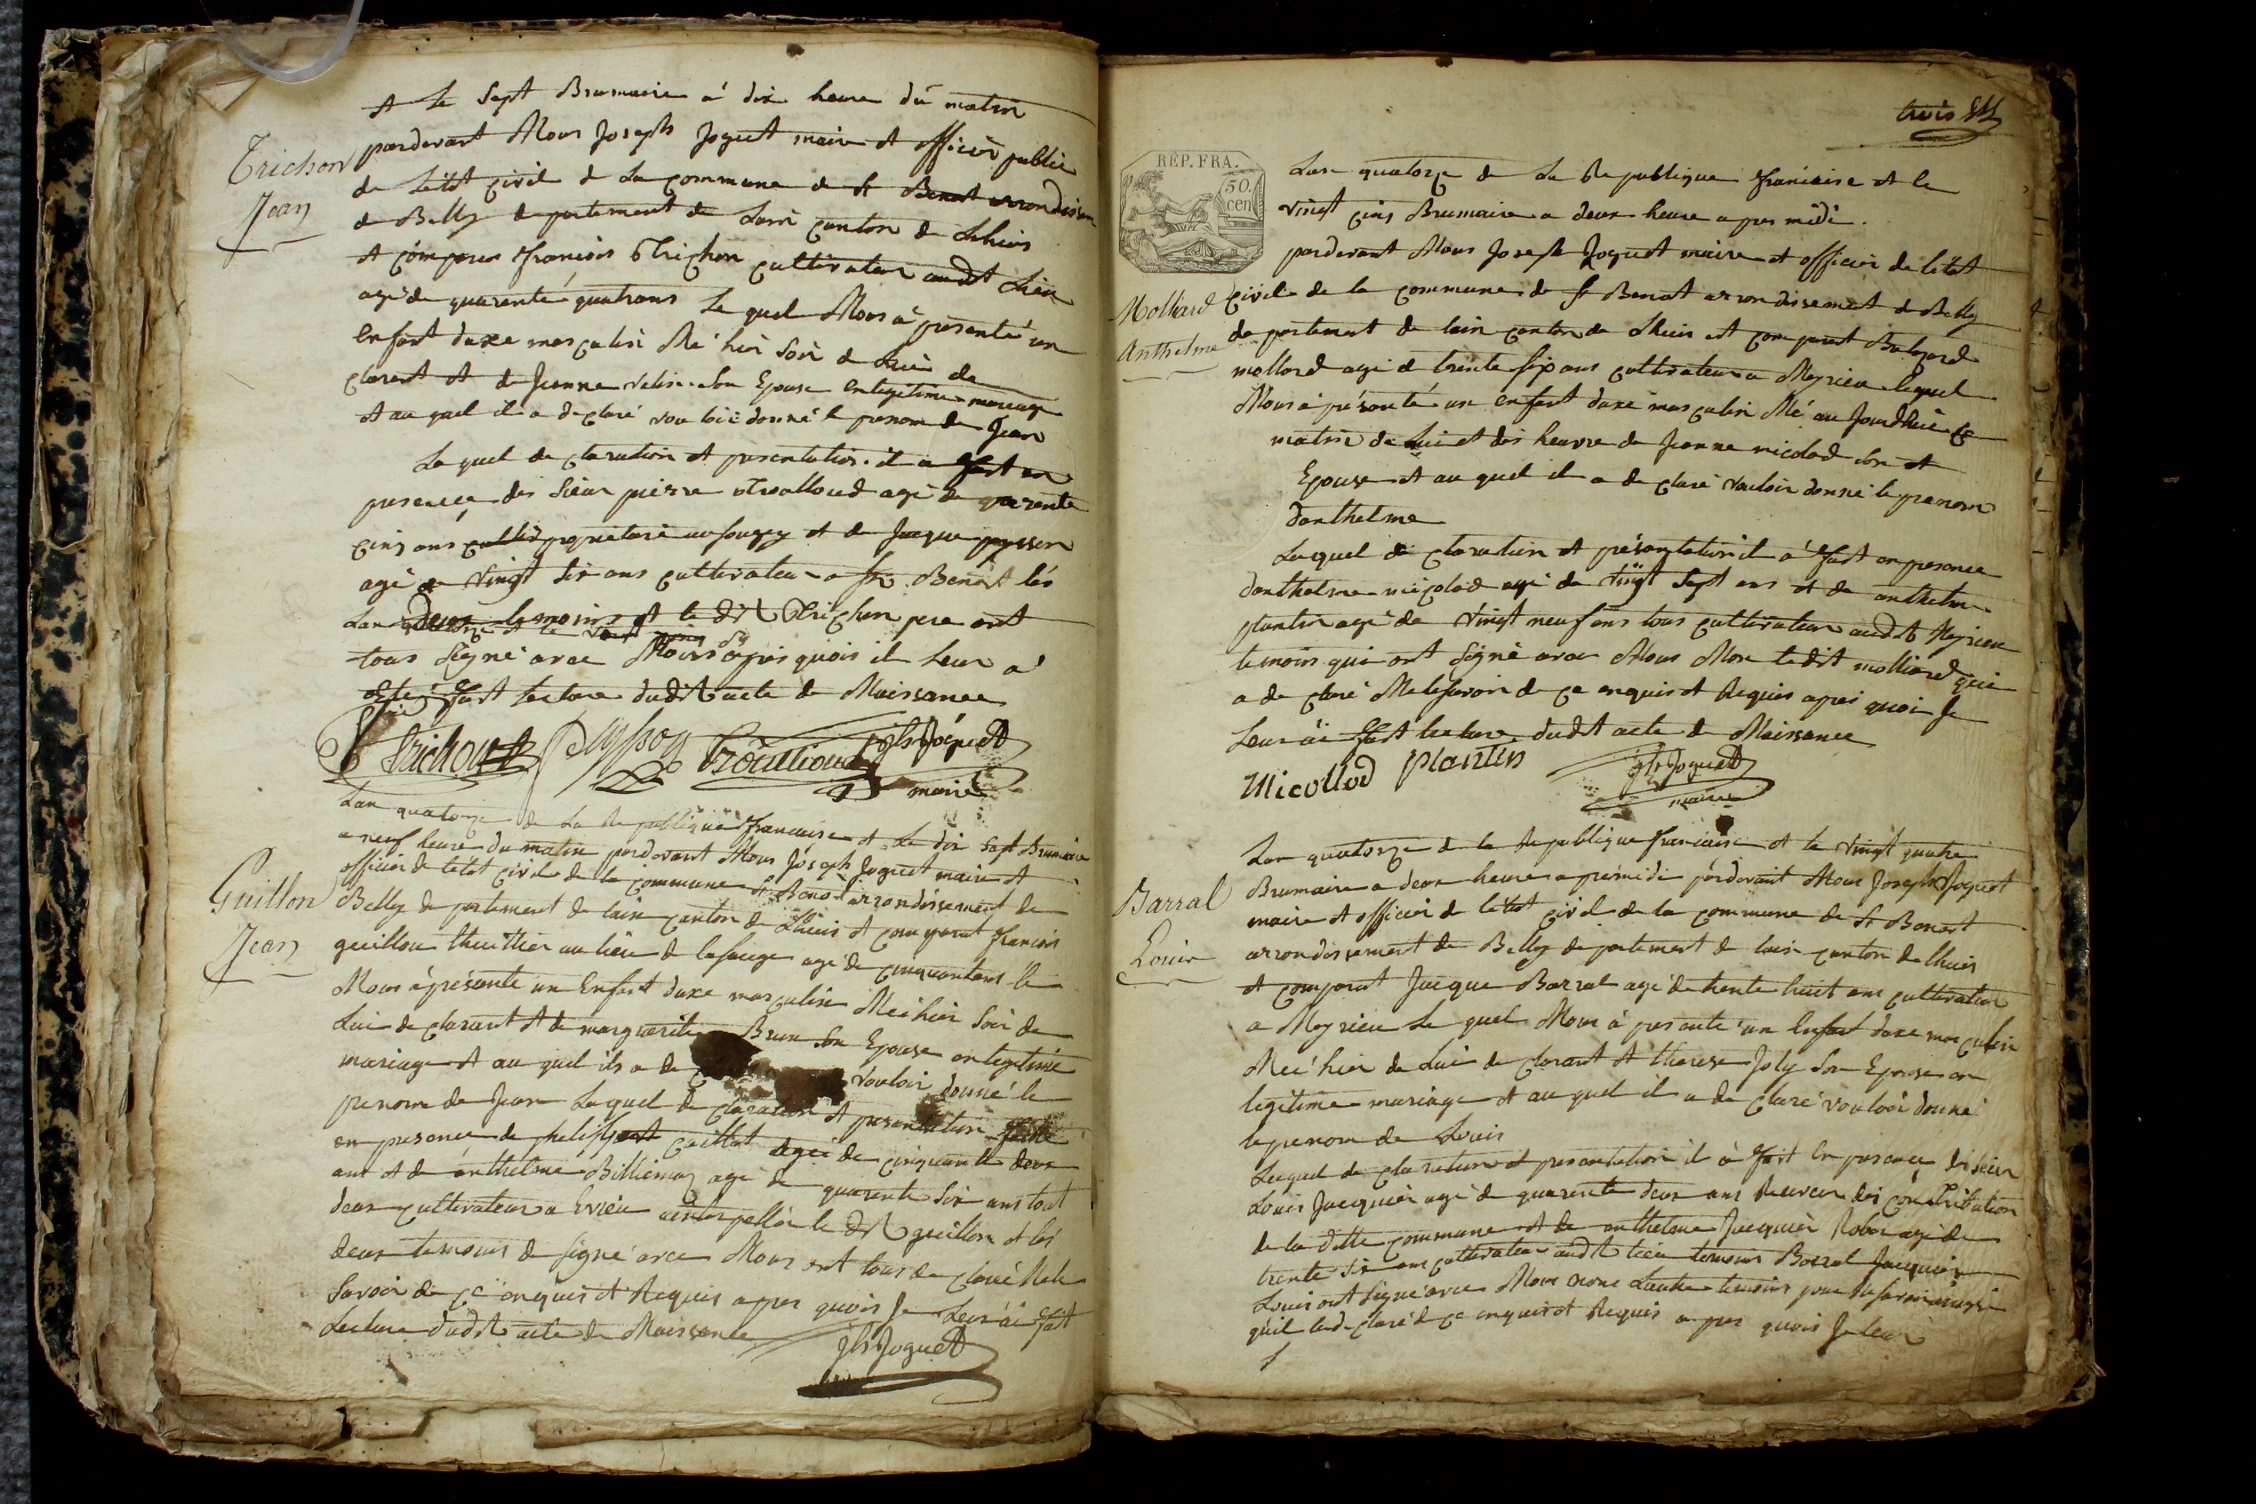 et le Sept Brumaire à dix heure du matin
pardevant Nous Joseph Joguet maire et officier public
de létat civil de La commune de St Benoit arrondissem
de Belley departement de Lain canton de Lhuis
et comparu françois Trichon cultivateur audit Lieu
agé de quarente quatrans Le quel Nous à presenté un
enfant daxe masculin Né hier Soir de Lui de
clarant et de Jeanne son Epouse en legitime mariage
et au quel il a declaré vouloir donné le prenom de Jean
Trichon
Jean
La quel declaration et presentation il a fait en
presence des Sieur pierre agé de quarente
cinq ans proprietaire et de Jacque peysson
agé de vingt Six ans cultivateur a St Benoit les
deux temoins et le dit Trichon pere ont
tous Signé avec Nous apres quois il Leur a
été fait Lecture dudit acte de Naissance
Trichon Peysson Jph Joguet
maire
Lan quatorze de La Republique francaise et Le dix Sept Brumaire
a neuf heure du matin pardevant Nous Joseph Joguet maire et
officier de létat civil de la commune St Benoit arrondissement de
Belley departement de lain canton de Lhuis et comparut francois
guillon au lieu de agé de cinquantans le
Nous à présenté un Enfant daxe masculin Né hier Soir de
Lui declarant et de marguerite Brun Son Epouse en legitime
mariage et au quel ils a de vouloir donné le
prenom de Jean Laquel declaration et presentation faite
en presence de caillat agé de cinquante deux
ans et de anthelme Billiemaz agé de quarente Six ans tout
deux cultivateur a Evieu le dit guillon et les
deux temoins de Signé avec Nous ont tous declaré Nele
Savoir de ce enquis et Requis apres quois Je Leur ai fait
Lecture dudit acte de Naissance
Guillon
Jean
Jph Joguet
trois
RÉP. FRA.
50.
cen
Lan quatorze de La Republique francaise et le
vingt cinq Brumaire a deux heure apres midi
pardevant Nous Joseph Joguet maire et officier de létat
civil de la commune de St Benoit arrondissement de Belley
departement de lain canton de Lhuis et comparut Baltazard
mollard agé de trente Six ans cultivateur a Meyrieu lequel
Nous à présenté un enfant daxe masculin Né au Jourdhui ce
matin de Lui et dix heure de Jeanne nicolod Son
Epouse et au quel il a declaré vouloir donné le prenom
danthelme
Molliard
Anthelme
Laquel declaration et présentation il a fait en presence
danthelme nicolod agé de vingt Sept ans et de anthelme
plantin agé de vingt neuf ans tous cultivateur audit Meyrieu
temoins qui ont Signé avec Nous Non ledit molliard qui
a declaré Nelesavoir de ce enquis et Requis apres quoi Je
Leur ai fait lecture dudit acte de Naissance
Nicollod Plantin Jph Joguet
maire
Lan quatorze de la Republique francaise et le vingt quatre
Brumaire a deux heure apremidi pardevant Nous Joseph Joguet
maire et officier de létat civil de la commune de St Benoit
arrondissement de Belley departement de lain canton de lhuis
et comparut Jacque Barral agé de trente huit ans cultivateur
a Meyrieu Le quel Nous à presenté un Enfant daxe masculin
Né hier de Lui declarant et therese Joly Son Epouse en
legitime mariage et au quel il a declaré vouloir donné
le prenom de Louis
Barral
Louis
Laquel declaration et presentation il à fait En presence des Sieur
Louis Jacquier agé de quarente deux ans Receveur des contribution
de la ditte commune et de anthelme Jacquier agé de
trente Six ans cultivateur audit lieu temoins Barral Jacquier
Louis ont Signé avec Nous Lautre temoins pour
quil declaré de ce enquis et Requis apres quois Je leur